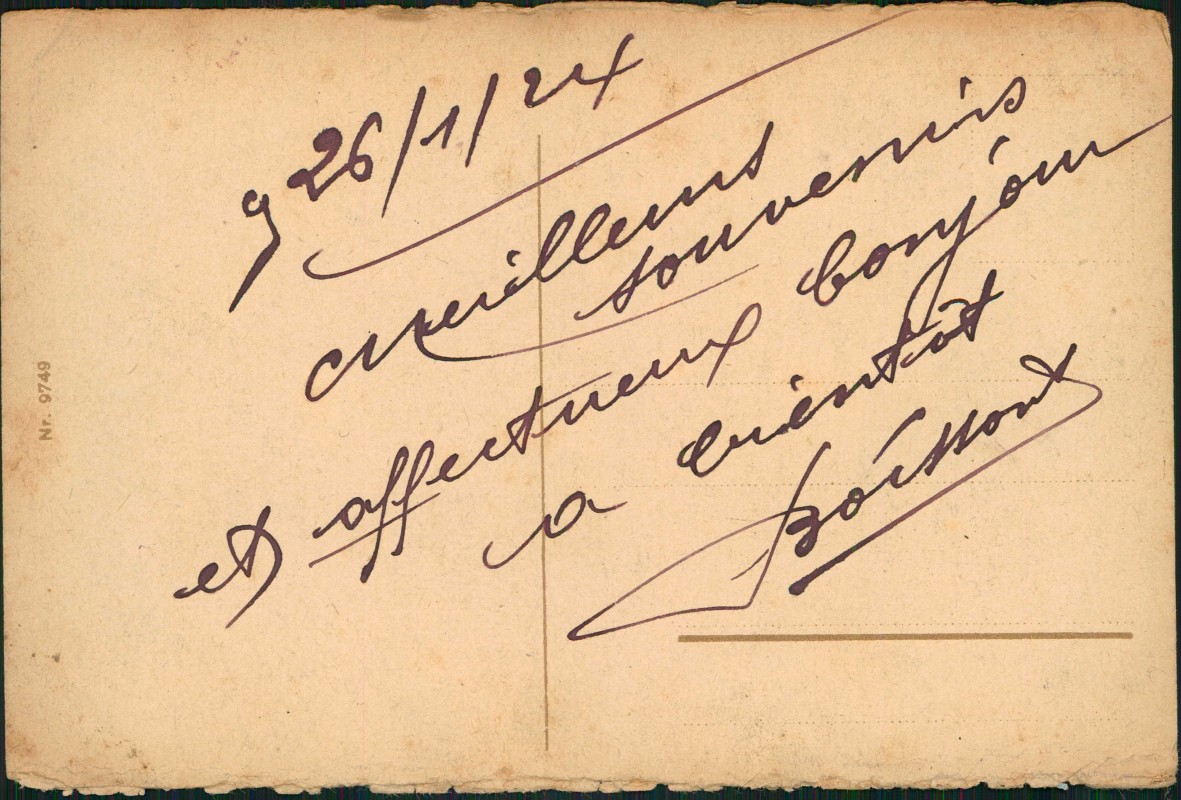 9 26/1/24
meilleurs
souvenirs
et affectueux bonjour
a bientôt
Boissont
Nr. 9749